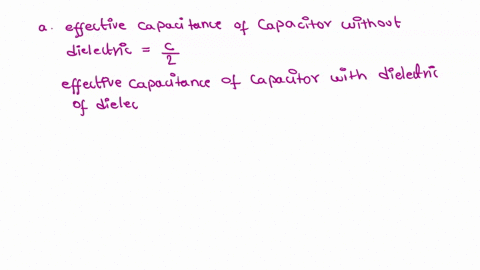 a. effective capacitance of capacitor without
dielectric = C/2
effective capacitance of capacitor with dielectric
of dielec